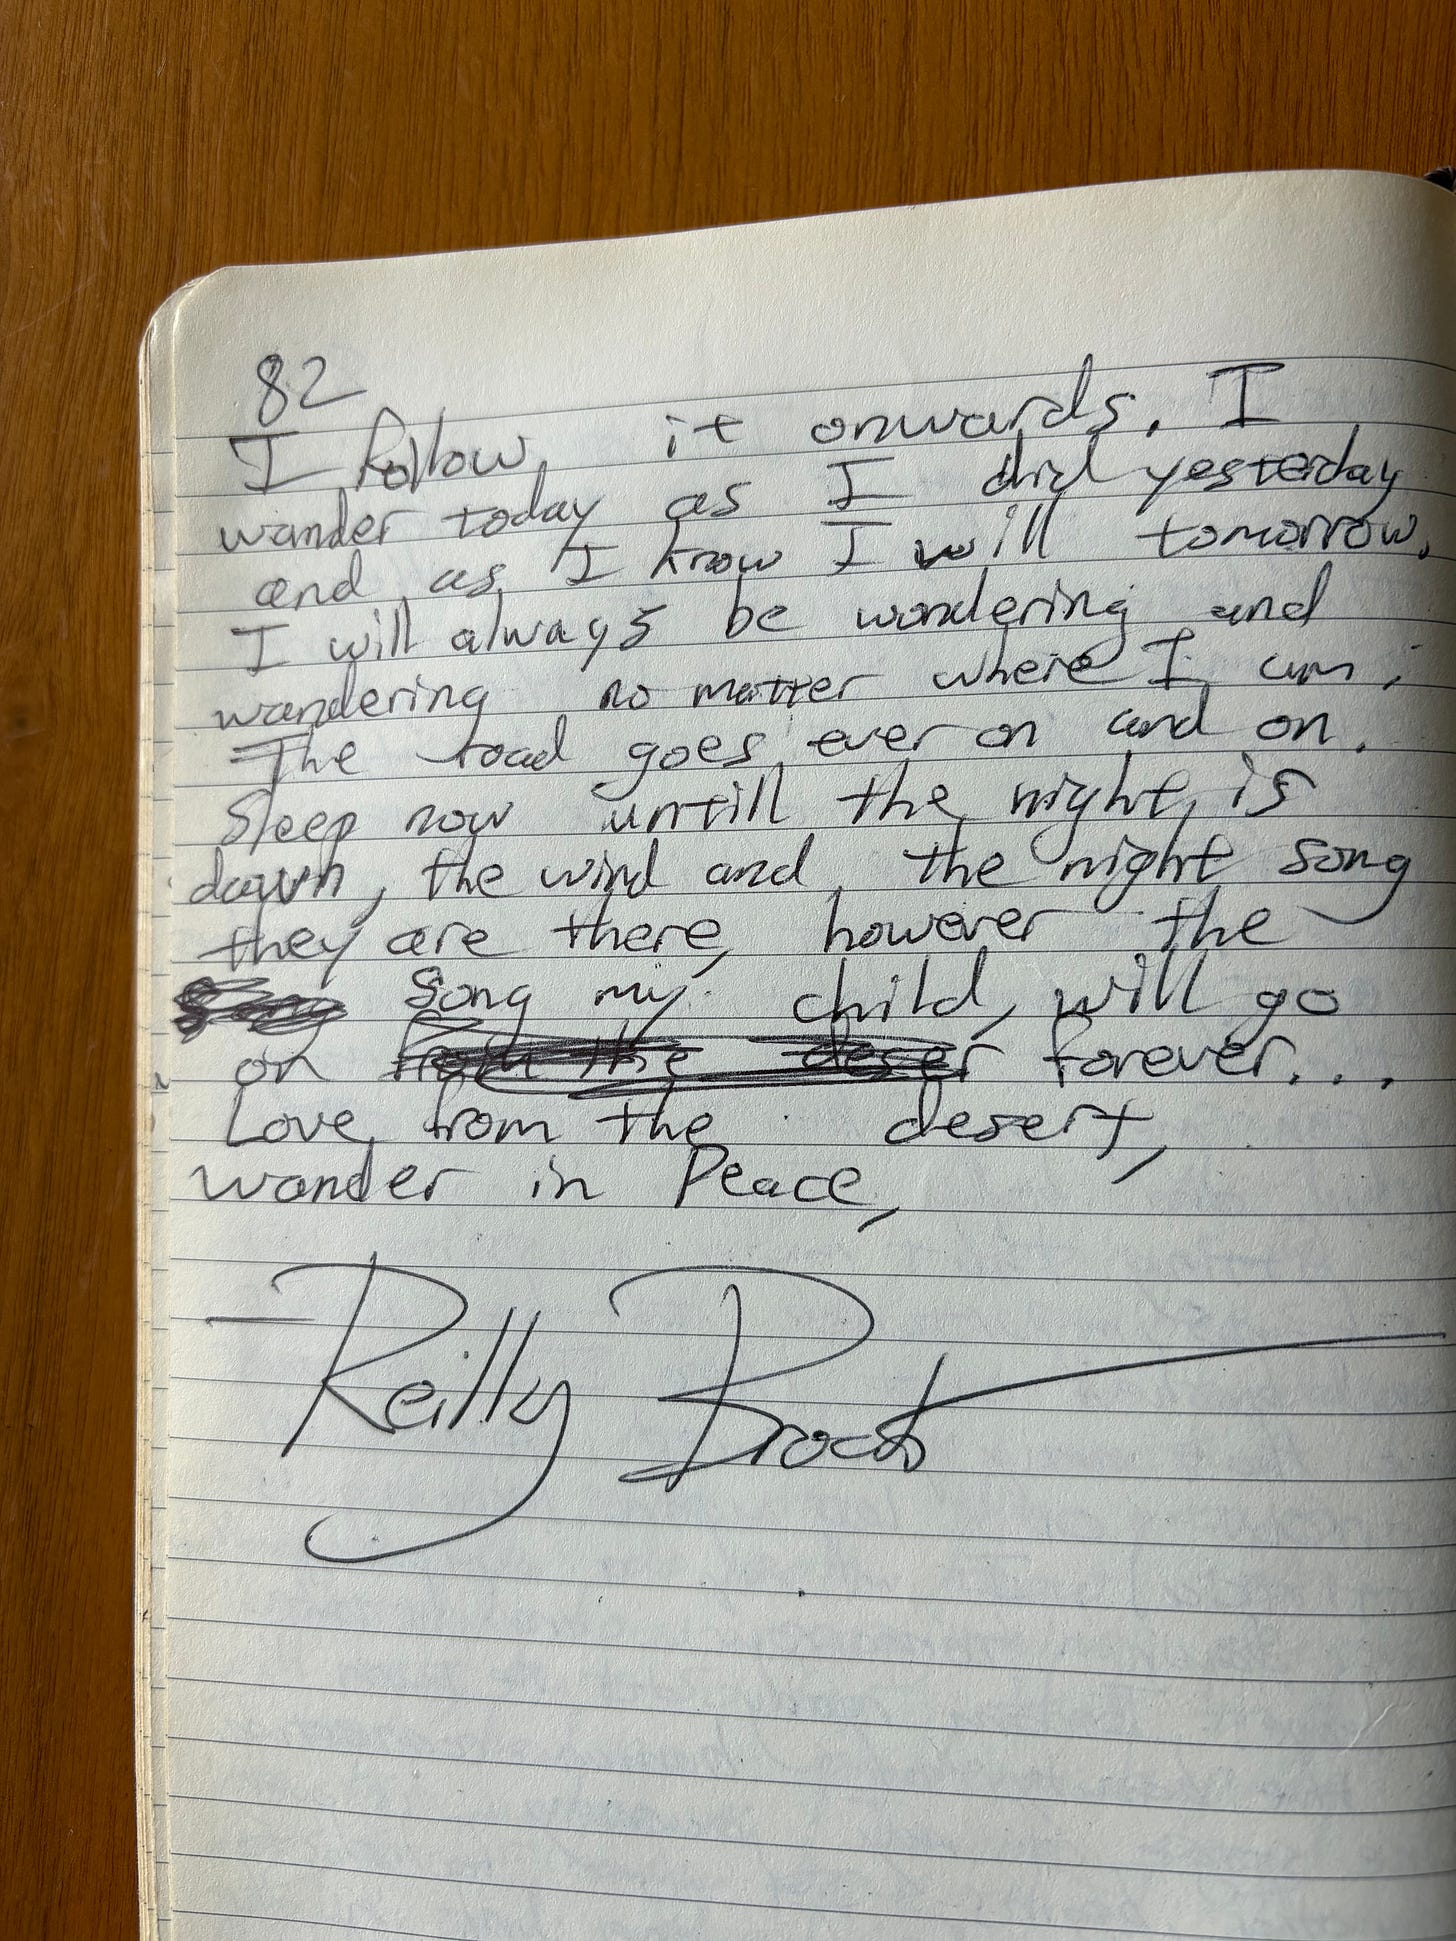 82
I follow it onwards. I
wander today as I did yesterday
and as I know I will tomorrow.
I will always be wondering and
wandering no matter where I am;
The road goes ever on and on.
Sleep now untill the night is
dawn, the wind and the night song
they are there, however the
song my child, will go
on from the deser forever...
Love from the desert,
wander in Peace,
Reilly Brock